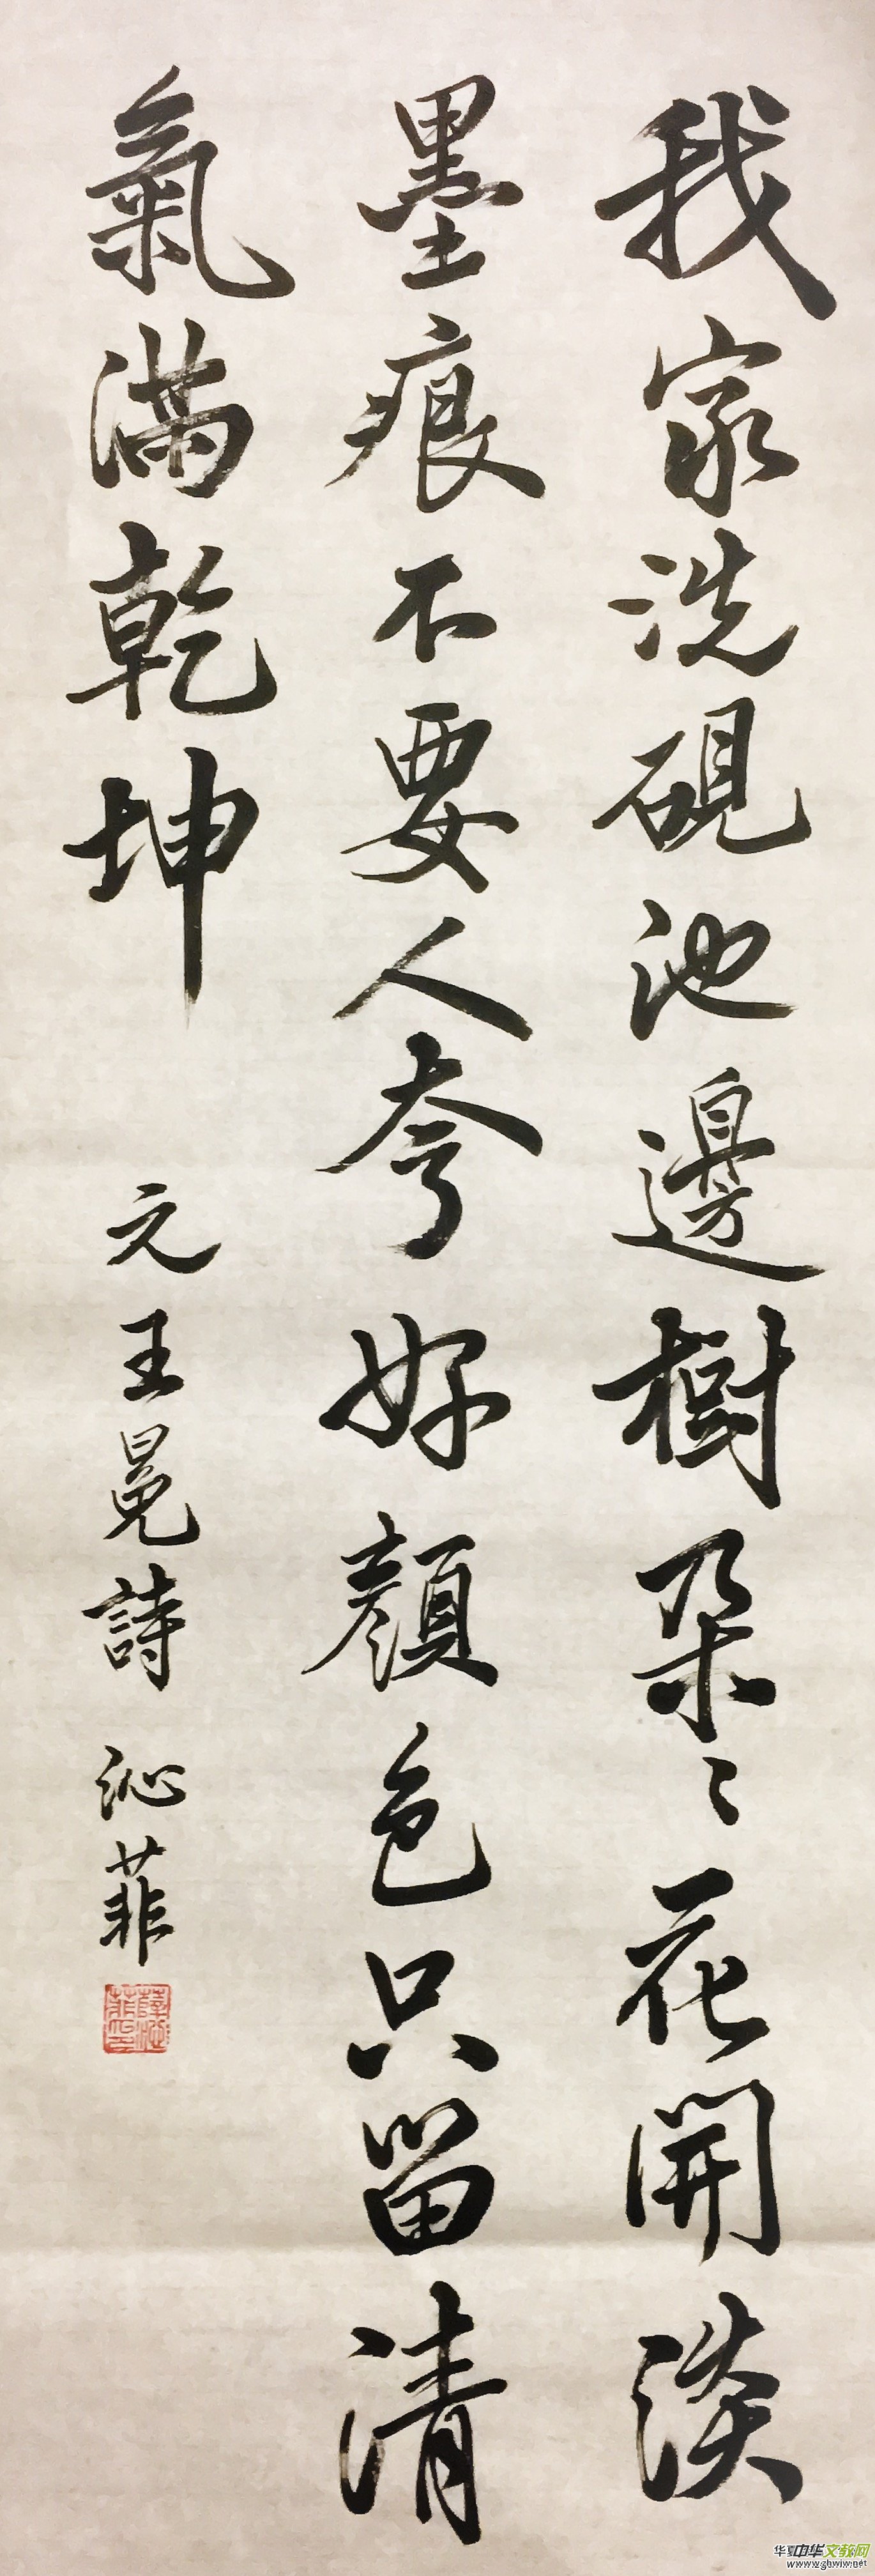 我家洗硯池邊樹朵〻花開淡
墨痕不要人夸好顏色只留清
氣滿乾坤
元王冕詩 沁菲
中华文教网